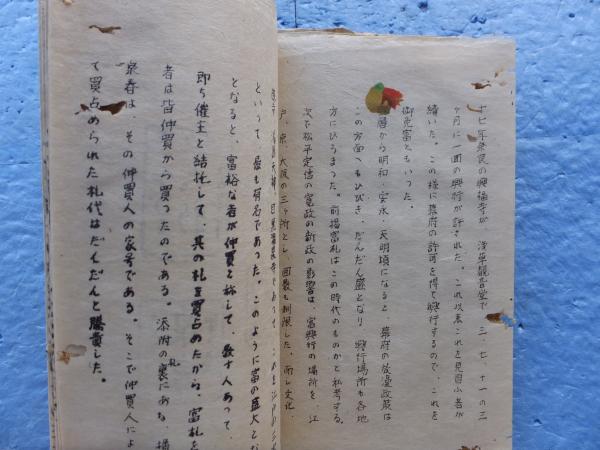 十七年奈良の興福寺が、浅草観音堂で 三、七、十一の三
ヶ月に一囬の興行が許された。これ以来これを見習ふ者が
續いた。この様に幕府の許可を得て興行するので、これを
御免富ともいった。
暦から明和・安永・天明頃になると、幕府の放漫政策は
この方面へもひびき、だんだん盛となり、興行場所も各地
方にひろまった。前掲富札はこの時代のものかと私考する。
次で松平定信の寛政の新政の影響は、富興行の場所を、江
戸、京、大阪の三ヶ所とし、回数も制限した。而し文化、
といって、最も有名であった。このように富の盛大と
となると、富裕な者が仲買と称して、数十人あって、
即ち催主と結託して、其の札を買占めたから、富札を
者は皆仲買から買ったのである。添附の裏札にある
泉春は、その仲買人の家号である。そこで仲買人によ
て買占められた札代はだんだんと騰貴した。